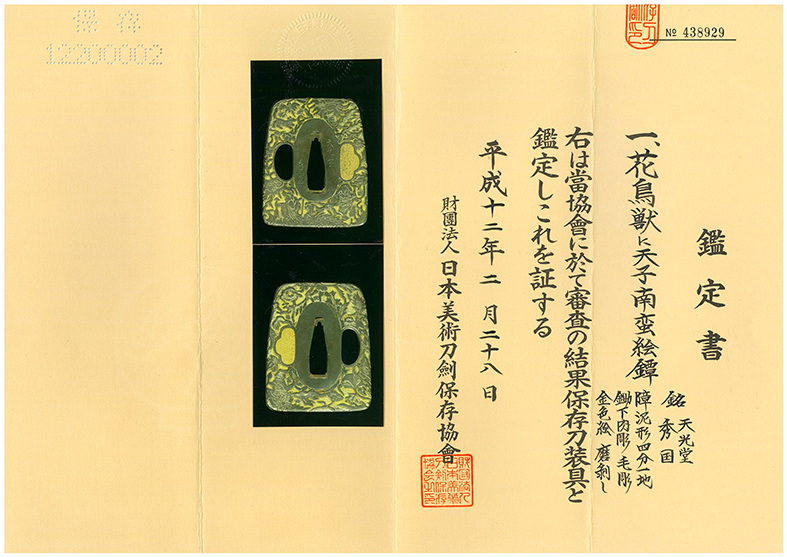 鑑定書
一、花鳥獣に天子南蛮絵鐔
銘 天光堂
秀国
障泥形四分一地
鋤下肉彫 毛彫
金色絵 磨剥し
右は當協會に於て審査の結果保存刀装具と
鑑定しこれを証する
平成十二年二月二十八日
財團法人 日本美術刀劍保存協會
№ 438929
保存
12200002